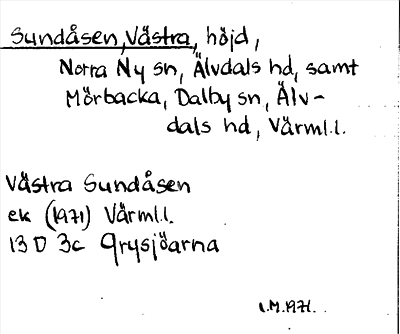 Sundåsen, Västra, höjd,
Norra Ny sn, Älvdals hd, samt
Mörbacka, Dalby sn, Älv-
dals hd, Värml.l.
Västra Sundåsen
ek (1971) Värml.l.
13 D 3c Grysjöarna
I.M.1971.